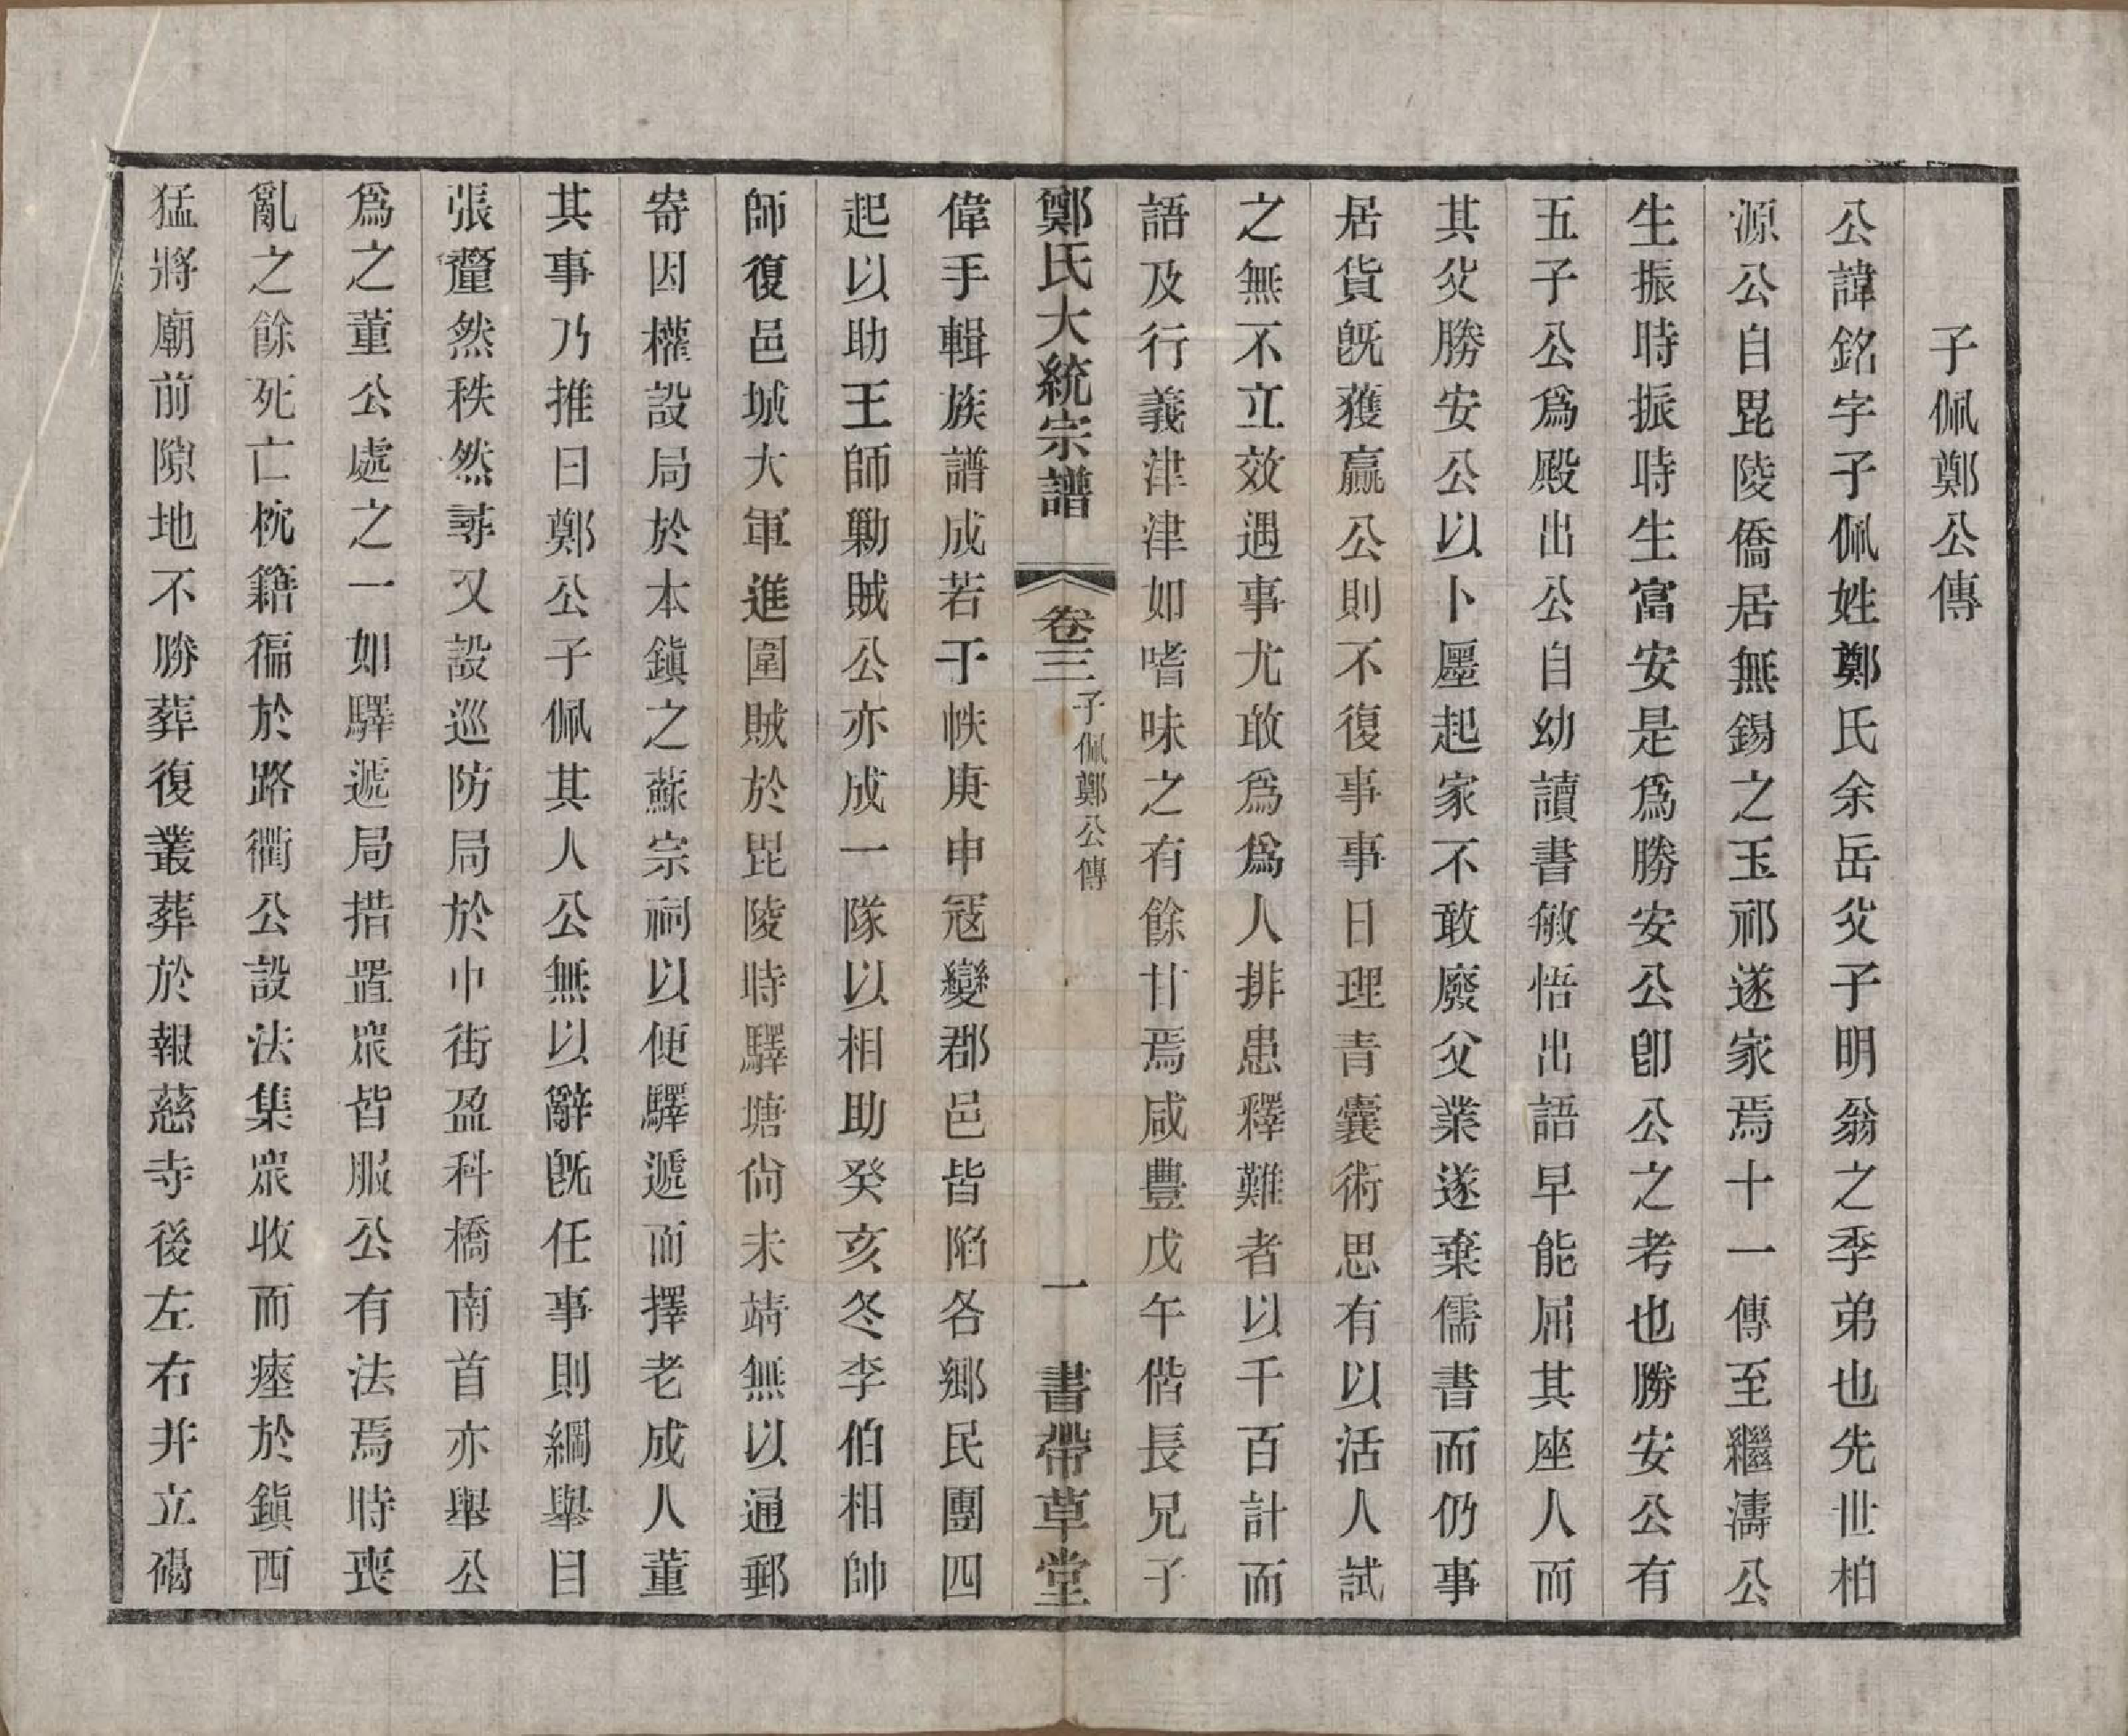 子佩鄭公傳
公諱銘字子佩姓鄭氏余岳父子明翁之季弟也先世柏
源公自毘陵僑居無錫之玉祁遂家焉十一傳至繼濤公
生振時振時生富安是爲勝安公卽公之考也勝安公有
五子公爲殿出公自幼讀書敏悟出語早能屈其座人而
其父勝安公以卜廛起家不敢廢父業遂棄儒書而仍事
居貨旣獲贏公則不復事事日理青囊術思有以活人試
之無不立效遇事尤敢爲爲人排患釋難者以千百計而
語及行義津津如嗜味之有餘甘焉咸豐戊午偕長兄子
鄭氏大統宗譜 卷三 子佩鄭公傳 一 書帶草堂
偉手輯族譜成若干帙庚申寇變郡邑皆陷各鄉民團四
起以助王師勦賊公亦成一隊以相助癸亥冬李伯相帥
師復邑城大軍進圍賊於毘陵時驛塘尙未靖無以通郵
寄因權設局於本鎭之蘇宗祠以便驛遞而擇老成人董
其事乃推曰鄭公子佩其人公無以辭旣任事則綱舉目
張釐然秩然尋又設巡防局於巾街盈科橋南首亦舉公
爲之董公處之一如驛遞局措置衆皆服公有法焉時喪
亂之餘死亡枕籍徧於路衢公設法集衆收而瘞於鎭西
猛將廟前隙地不勝葬復叢葬於報慈寺後左右幷立碣